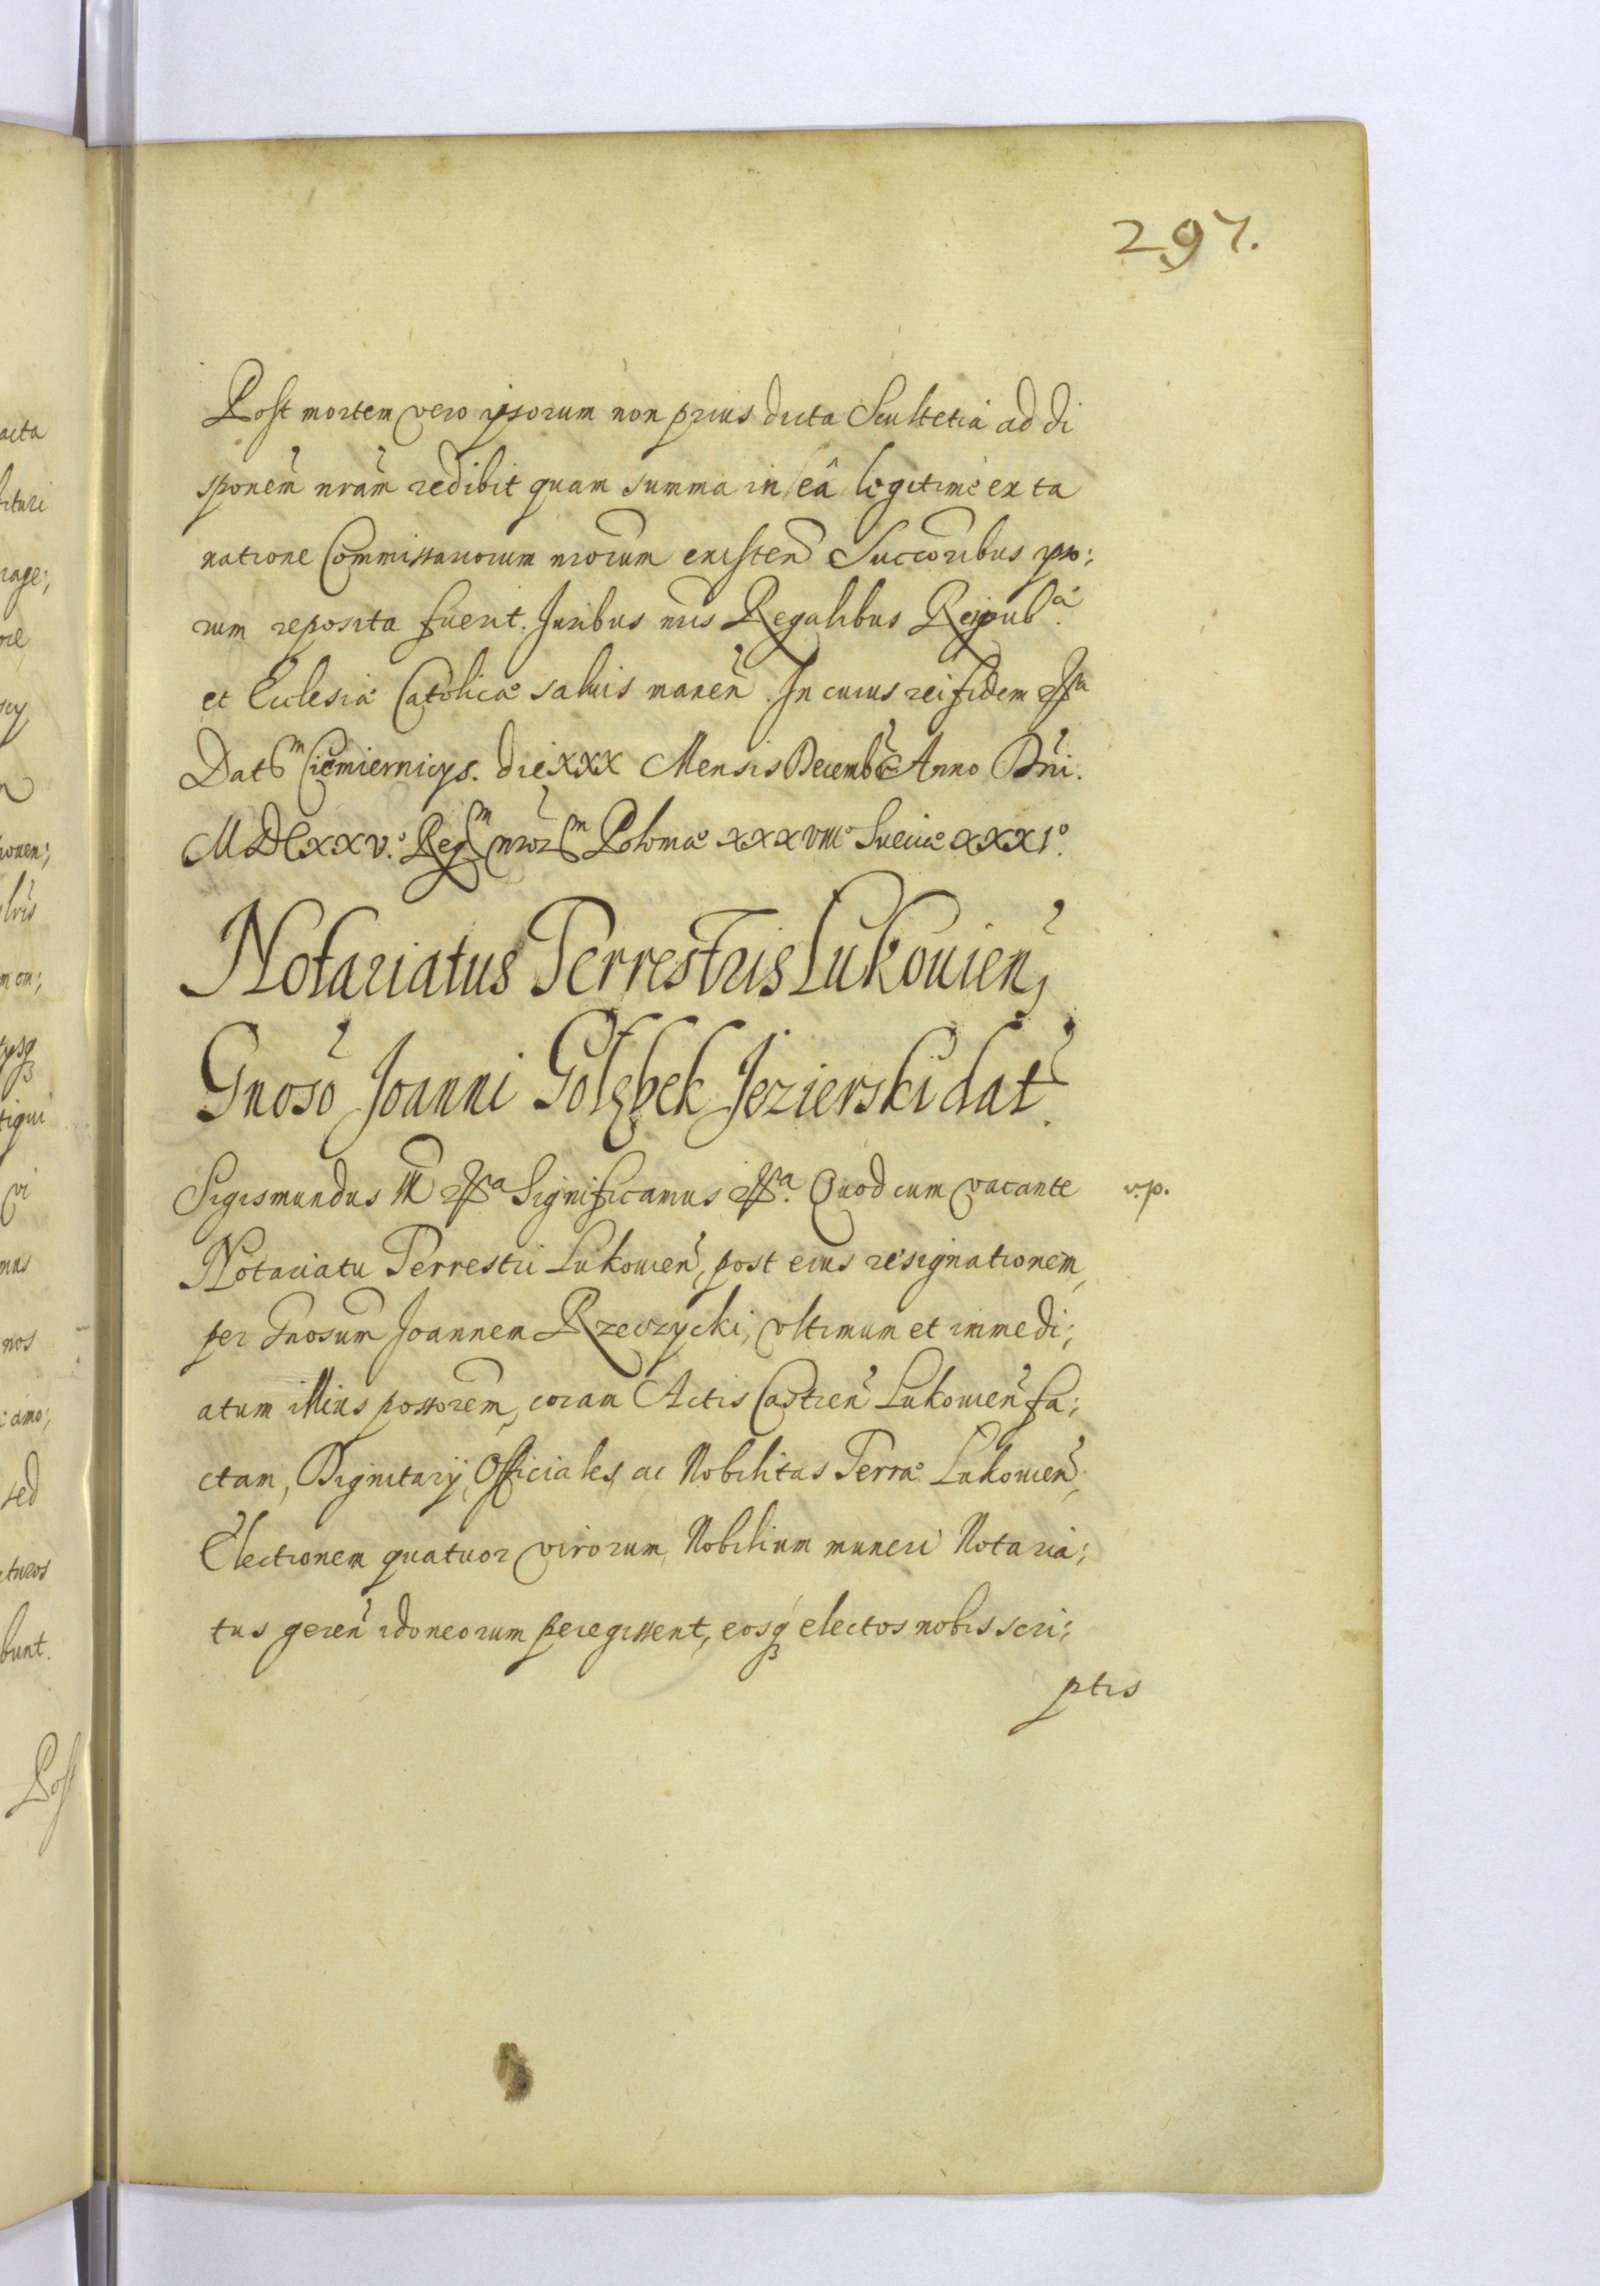 297.
Post mortem vero ipsorum non prius dicta Scultetia ad di
sponem̃ nram̃ redibit quam summa in eâ legitime ex ta
xatione Commissariorum nrorum existeñ Succoribus ipso:
rum reposita fuerit. Juribus nris Regalibus Reipub.ᵃᵉ
et Eclesiæ Catolicæ saluis maneñ. In cuius rei fidem etc.ᵃ
Datᵐ Ciemiernicys. die XXX Mensis Decembr̃ Anno Dñi.
MDCXXV.º Regᵐ nrorᵐ Poloniæ XXXVIIIº Sueciæ XXXIº.
Notariatus Terrestris Lukouieñ,
Gnosõ Joanni Gołębek Jezierski dat̃.
Sigismundus III etc.ᵃ Significamus etc.ᵃ Quod cum vacante
v.p.
Notariatu Terrestri Lukouieñ, post eius resignationem,
per Gnosum Joannem Rzeczycki, vltimum et immedi:
atum illius possorem, coram Actis Castreñ Lukouieñ fa:
ctam, Dignitarij, Officiales, ac Nobilitas Terræ Lukouieñ,
Electionem quatuor virorum Nobilium muneri Notaria:
tus gereñ idoneorum peregissent, eosq electos nobis scri:
ptis
acta
rage:
ionen:
tiqui
vi
mus
nos
sed
cturos
bunt.
Post